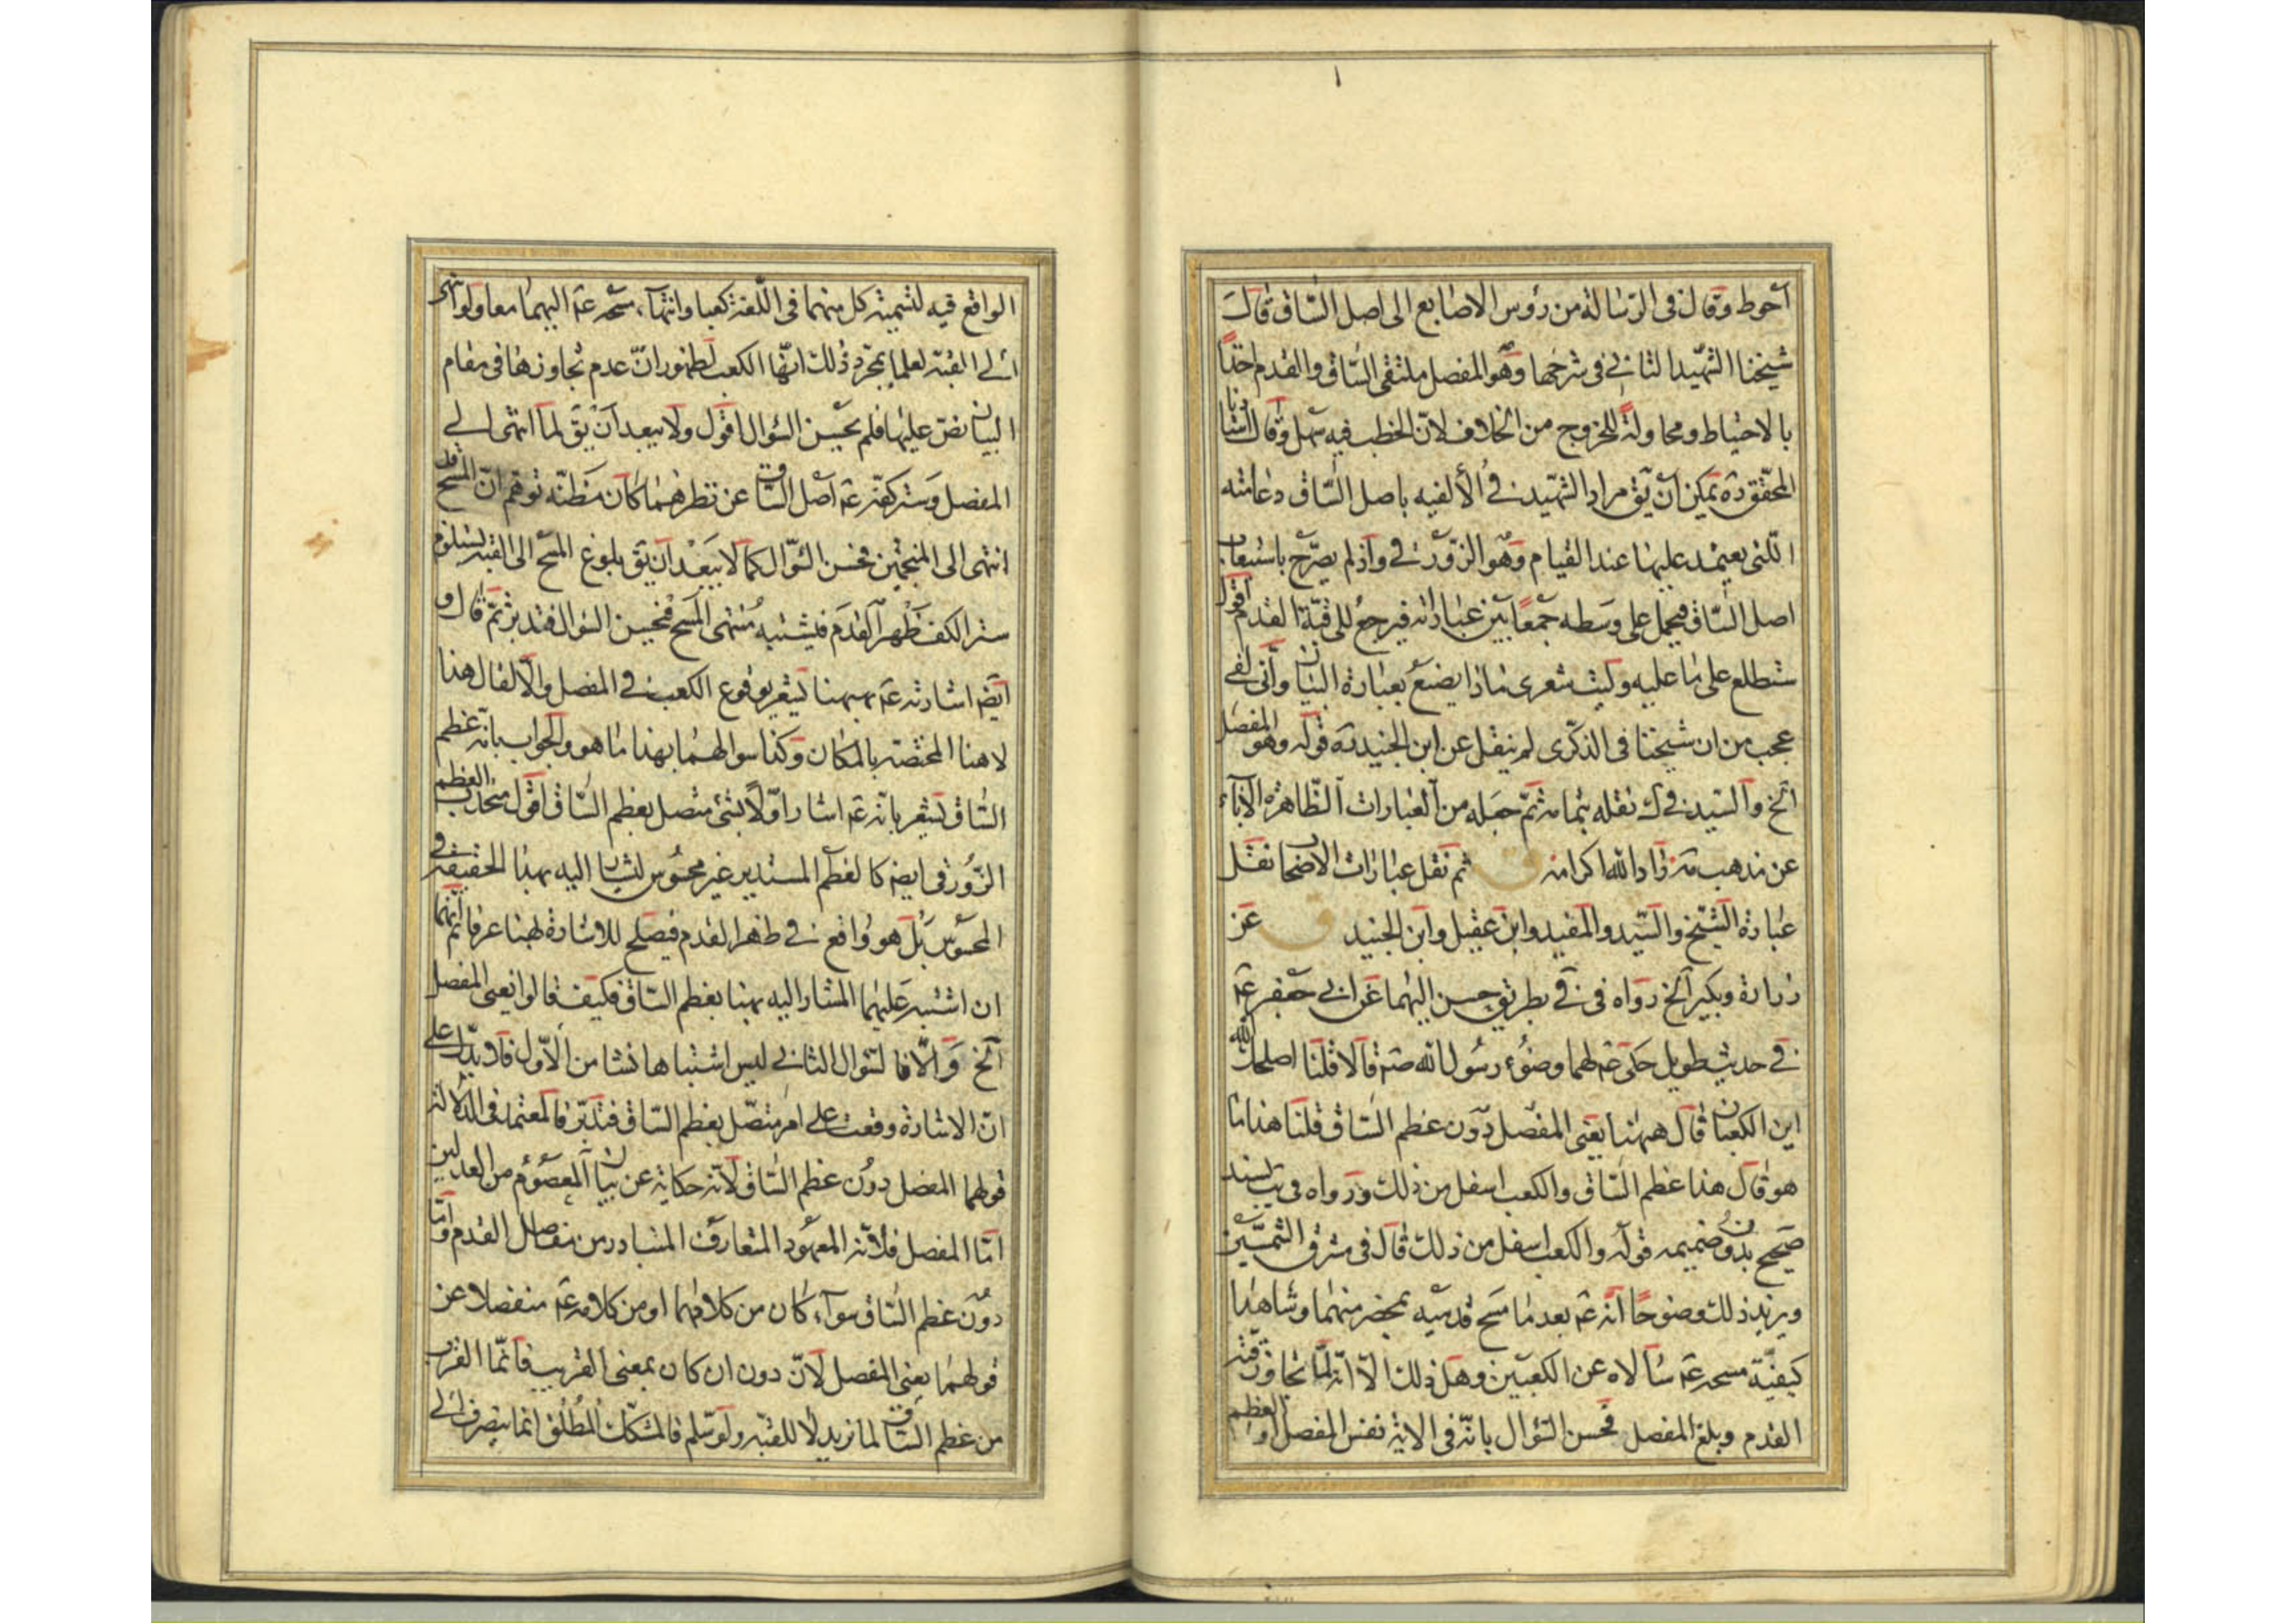 احوط وقال في الرسالة من رؤس الاصابع الى اصل الساق قال
شيخنا الشهيد الثاني في شرحها وهو المفصل ملتقى الساق والقدم اخذا
بالاحتياط ومحاولة للخروج من الخلاف لان الخطب فيه سهل وقال استادنا
المحقق ره يمكن ان يق مراد الشهيد في الألفيه باصل الساق دعامته
التي يعتمد عليها عند القيام وهو الزورقي واذ لم يصرح باستيعاب
اصل الساق فيحمل على وسطه جمعا بين عباراته فيرجع للى قبة القدم اقول
ستطلع على ما عليه وليت شعرى ماذا يصنع بعبارة البيان وأنى لفي
عجب من ان شيخنا في الذكرى لم ينقل عن ابن الجنيد ره قوله وهو المفصل
الخ والسيد في ك نقله بتمامه ثم جعله من العبارات الظاهرة الآباء
عن مذهب مه زاد الله اكرامه ق ثم نقل عبارات الاصحاب نقل
عبارة الشيخ والسيد والمفيد وابن عقيل وابن الجنيد ق عن
زرارة وبكير الخ رواه في في بطريق حسن اليهما عن ابي جعفر ع
في حديث طويل حكى ع لهما وضوء رسول الله ص قالا قلنا اصلحك الله
اين الكعبان قال ههنا يعني المفصل دون عظم الساق قلنا هذا ما
هو قال هذا عظم الساق والكعب اسفل من ذلك ورواه في يب بسند
صحيح بدون ضميمه قوله والكعب اسفل من ذلك قال في مشرق الشمسين
ويزيد ذلك وضوحا انه ع بعد ما مسح قدميه بمحضر منهما وشاهدا
كيفية مسحه ع سألاه عن الكعبين وهل ذلك الا انه لما تجاوز قبة
القدم وبلغ المفصل فحسن السؤال بانه في الاية نفس المفصل او العظم
الواقع فيه لتسمية كل منهما في اللغة كعبا وانتهاء مسحه ع اليهما معا ولو انتهى
الى القبة لعلما بمجرد ذلك انها الكعب لظهور ان عدم تجاوزها في مقام
البيان نص عليها فلم يحسن السؤال اقول ولا يبعد ان يق لما انتهى الى
المفصل وستر كفه ع اصل الساق عن نظرهما كان مظنه توهم ان المسح قد
انتهى الى المنجمين فحسن السؤال كما لا يبعد ان يق بلوغ المسح الى القبه يستلزم
ستر الكف ظهر القدم فيشتبه منتهى المسح فيحسن السؤال فتدبر ثم قال و
ايضا اشارته ع بههنا يشعر بوقوع الكعب في المفصل والا لقال هذا
لا هنا المختصه بالمكان وكذا سوالهما بهذا ما هو والجواب بانه عظم
الساق يشعر بانه ع اشار اولا بشئ متصل بعظم الساق اقول محدب العظم
الزورقي ايضا كالعظم المستدير غير محسوس ليشار اليه بهذا الحقيقة في
المحسوس بل هو واقع في ظهر القدم فيصلح للاشارة بهنا عرفا ثم انهما
ان اشتبه عليهما المشار اليه بهنا بعظم الساق فكيف قالوا يعني المفصل
الخ والا فالسؤال الثاني ليس اشتباها نشا من الأول فلا يدل على
ان الاشارة وقعت على امر متصل بعظم الساق فتدبر فالمعتمد في الدلالة
قولهما المفصل دون عظم الساق لانه حكاية عن بيان المعصوم من العدلين
اما المفصل فلانه المعهود المتعارف المتبادر من مفاصل القدم واما
دون عظم الساق سوآء كان من كلامهما او من كلامه ع منفصلا عن
قولهما يعني المفصل لان دون ان كان بمعنى القريب فانما القرب
من عظم الساق لما نريد لا للقبه ولو سلم فالمشكك المطلق انما ينصرف الى